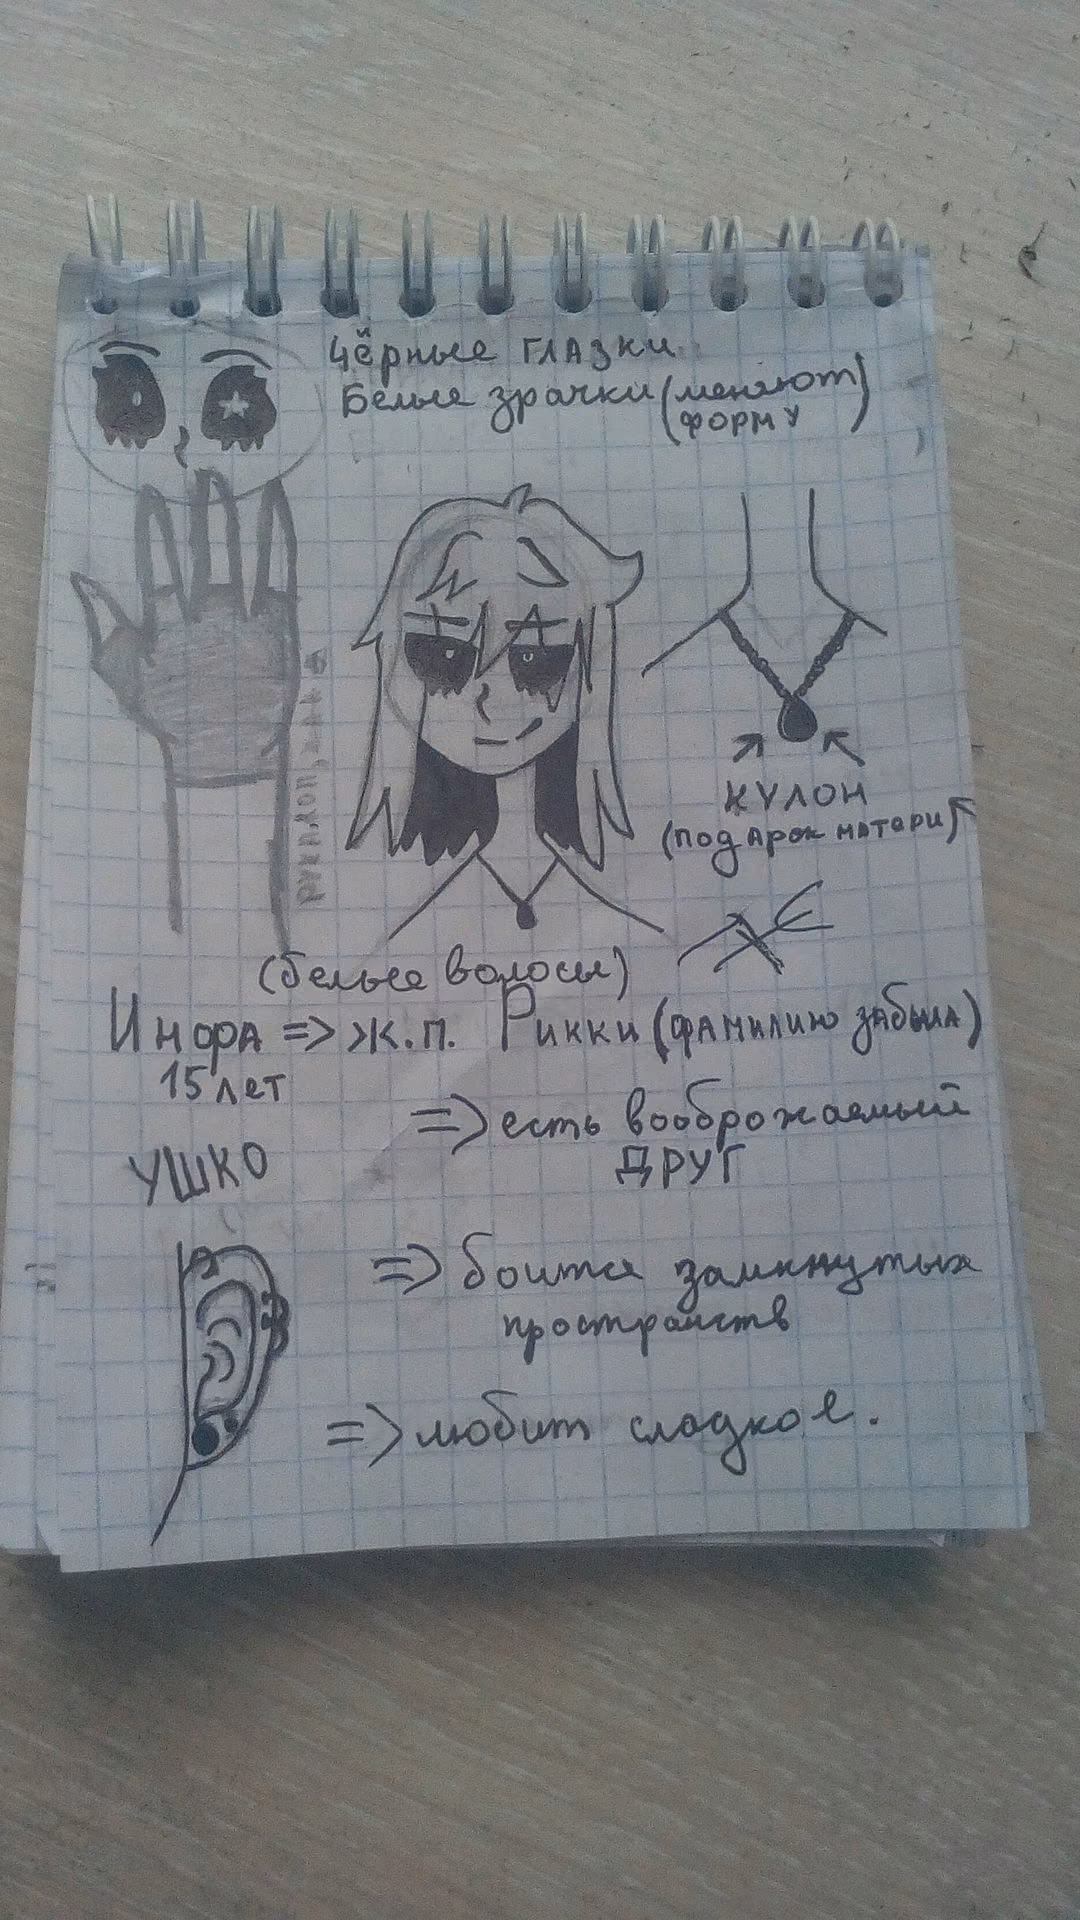 Чёрные глазки.
Белые зрачки (меняют
форму)
КУЛОН
(подарок матери)
(белые волосы)
Инфа => ж.п. Рикки (фамилию забыла)
15 лет
=> есть вооброжаемый
ДРУГ
УШКО
=> боится замкнутых
пространств
=> любит сладкое.